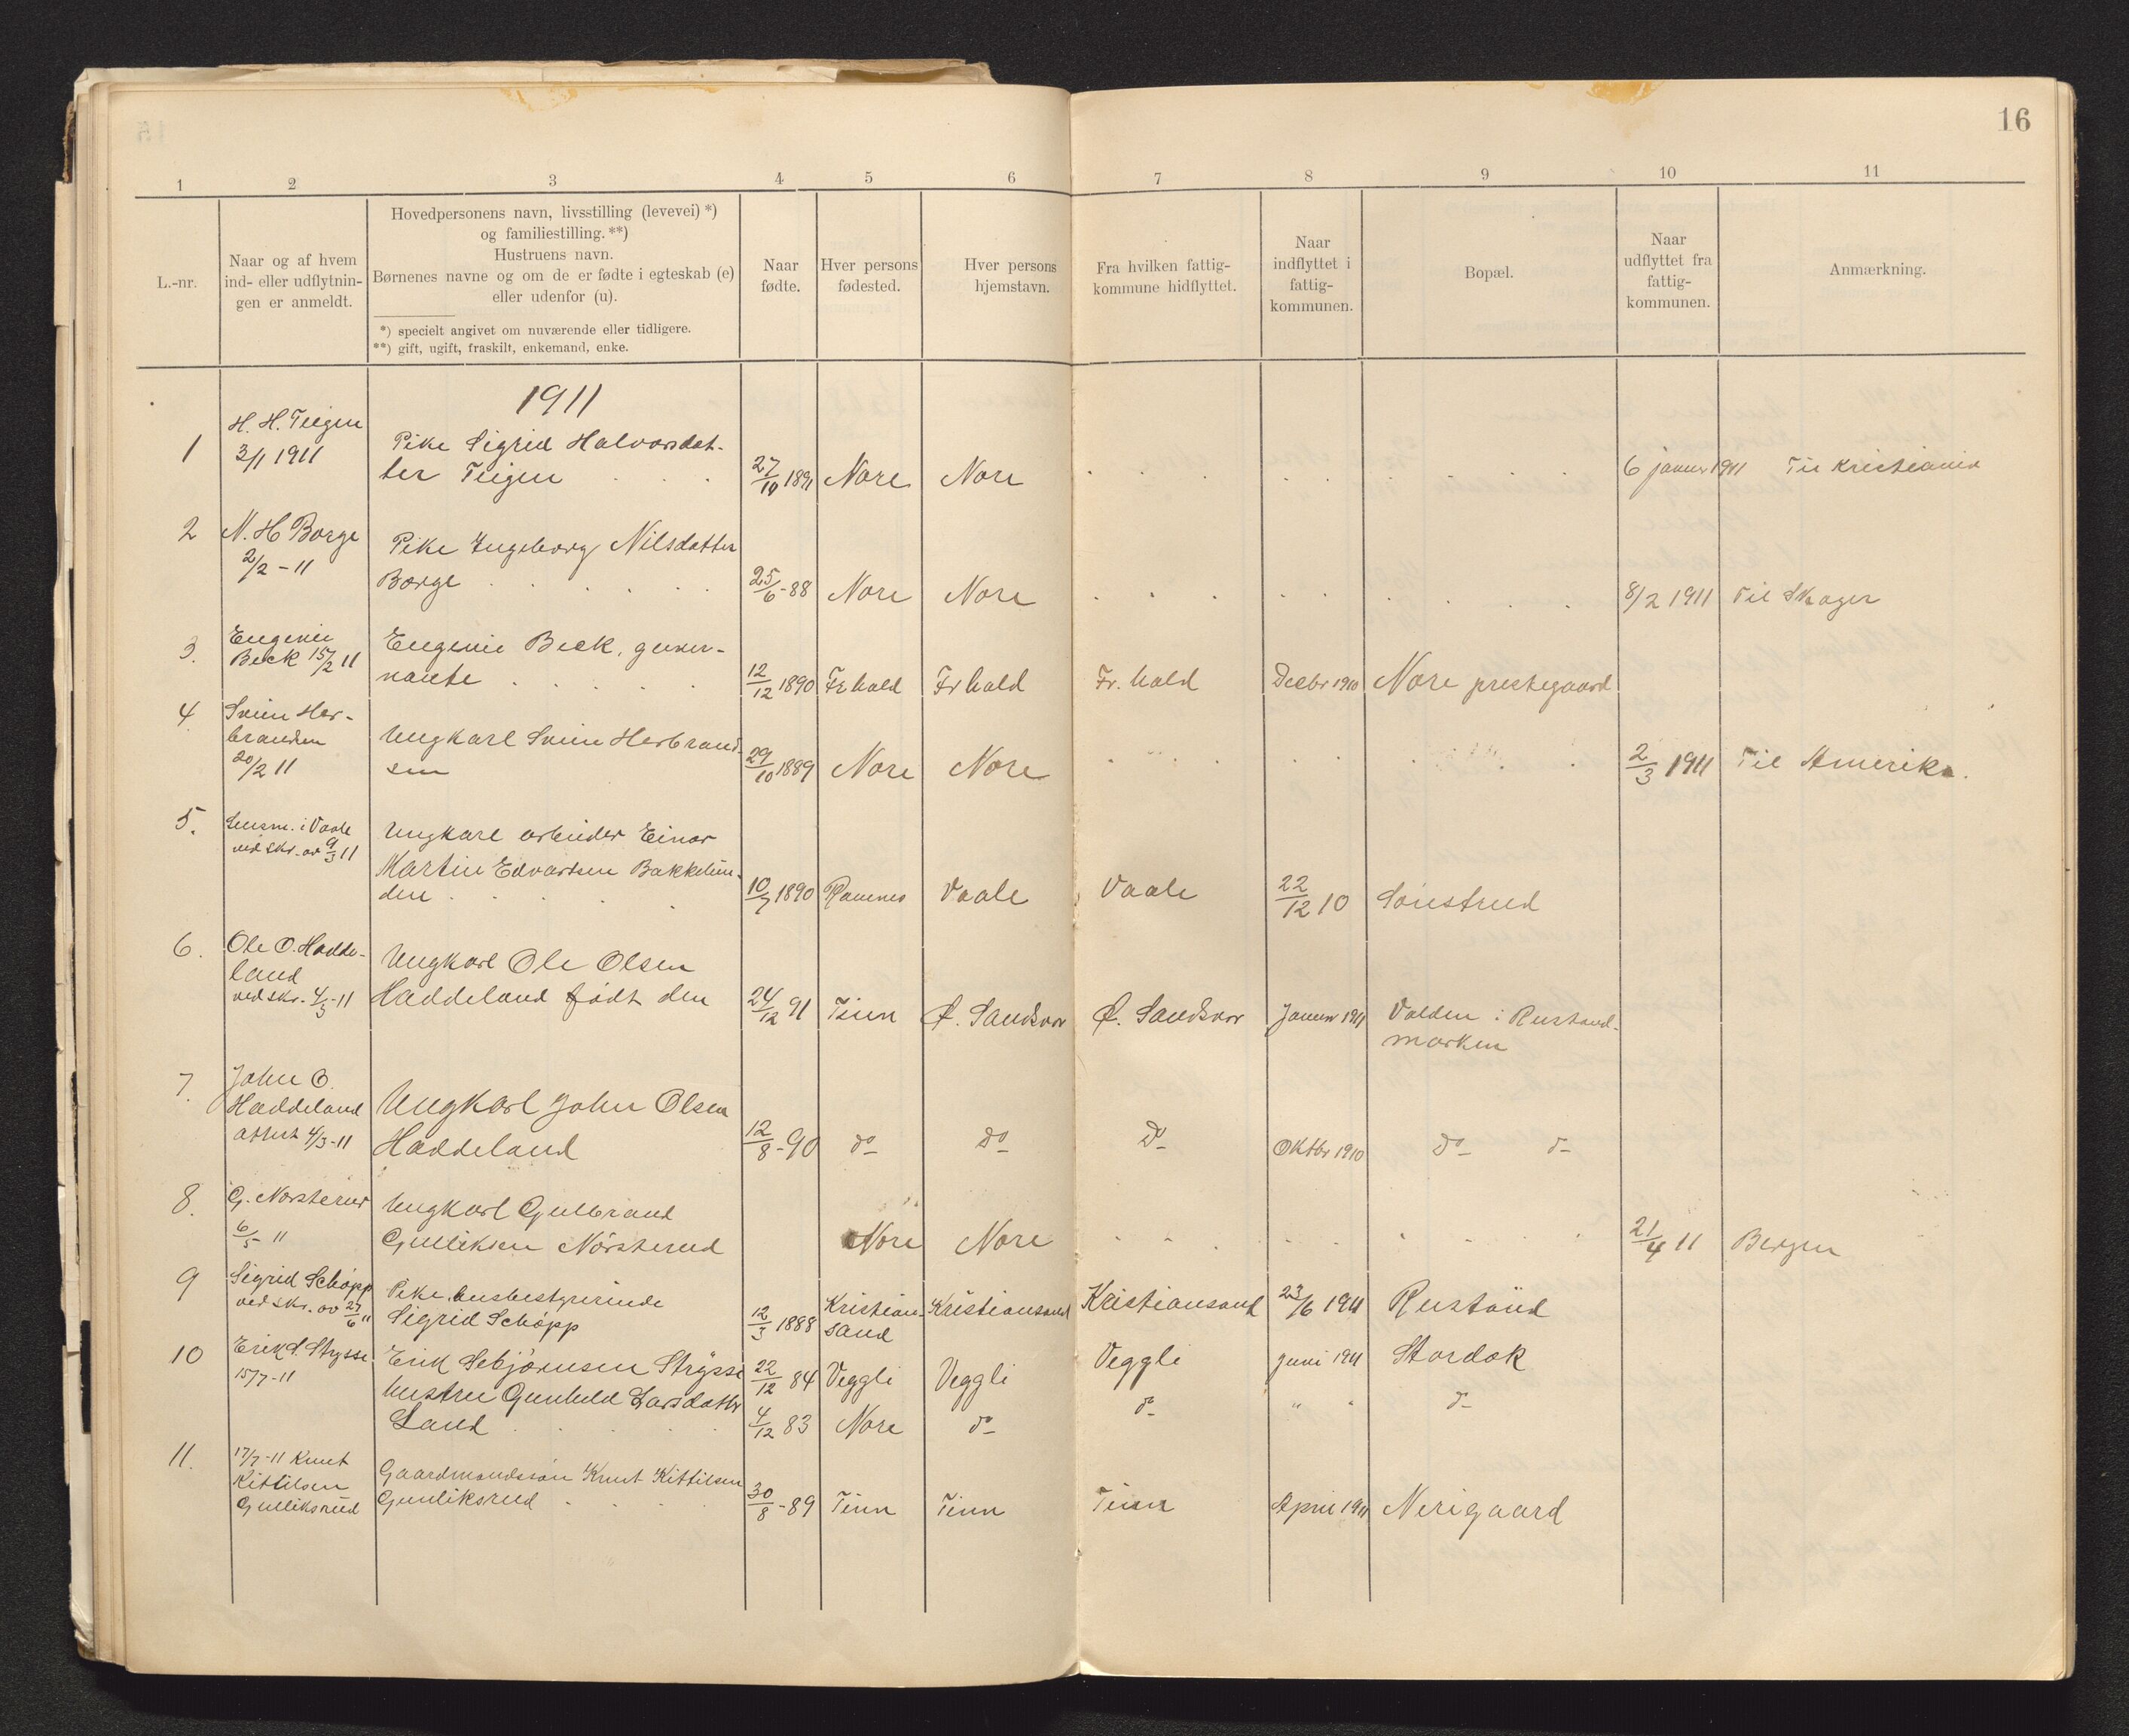 16
1 2 3 4 5 6 7 8 9 10 11
L.-nr.
Naar og af hvem
ind- eller udflytnin-
gen er anmeldt.
Hovedpersonens navn, livsstilling (levevei) *)
og familiestilling. **)
Hustruens navn.
Børnenes navne og om de er fødte i egteskab (e)
eller udenfor (u).
*) specielt angivet om nuværende eller tidligere.
**) gift, ugift, fraskilt, enkemand, enke.
Naar
fødte.
Hver persons
fødested.
Hver persons
hjemstavn.
Fra hvilken fattig-
kommune hidflyttet.
Naar
indflyttet i
fattig-
kommunen.
Bopæl.
Naar
udflyttet fra
fattig-
kommunen.
Anmærkning.
1911
1 H. H. Teigen
3/1 1911
Pike Sigrid Halvorsdat-
ter Teigen 27/10 1891 Nore Nore 6 januar 1911 Til Kristiania
2 N. H Borge
2/2 - 11
Pike Ingeborg Nilsdatter
Borge 25/6 - 88 Nore Nore 8/2 1911 Til Skoger
3. Eugenie
Beck 15/2 11
Eugenie Beck, guver-
nante 12/12 1890 Fr hald Fr hald Fr. hald Decbr 1910 Nore prestegaard
4 Svein Her-
brandsen
20/2 11
Ungkarl Svein Herbrand-
sen 29/10 1889 Nore Nore 2/3 1911 Til Amerika.
5. Lensm. i Vaale
ved skr. av 9/3 11
Ungkarl arbeider Einar
Martin Edvartsen Bakkelin-
den 10/7 1890 Ramnes Vaale Vaale 22/12 10 Sønstrud
6. Ole O. Hadde-
land
ved skr. 4/3 - 11
Ungkarl Ole Olsen
Haddeland født den 24/12 91 Tinn Ø. Sandsvær Ø. Sandsvær Januar 1911 Valden i Rustand-
marken
7. John O.
Haddeland
attest 4/3 - 11
Ungkarl John Olsen
Haddeland 12/8 - 90 do do Do Oktbr 1910 do d-
8. G. Nørsterud
6/5 11
Ungkarl Gulbrand
Gulliksen Nørsterud Nore Nore 21/4 11 Bergen
9 Sigrid Schøpp
ved skr. av 27/6 "
Pike, husbestyrerinde
Sigrid Schøpp 12/3 1888 Kristian-
sand Kristiansand Kristiansand 23/6 1911 Rustand
10 Erik S. Strysse
15/7 - 11
Erik Sebjørnsen Strysse 22/12 84 Veggli Veggli Veggli juni 1911 Stordok
hustru Gunhild Larsdatter
Land 4/12 83 Nore do d- " d-
11. 17/7 - 11 Knut
Kittilsen
Gulliksrud
Gaardmandssøn Knut Kittilsen
Gunliksrud 30/8 - 89 Tinn Tinn Tinn April 1911 Nerigaard